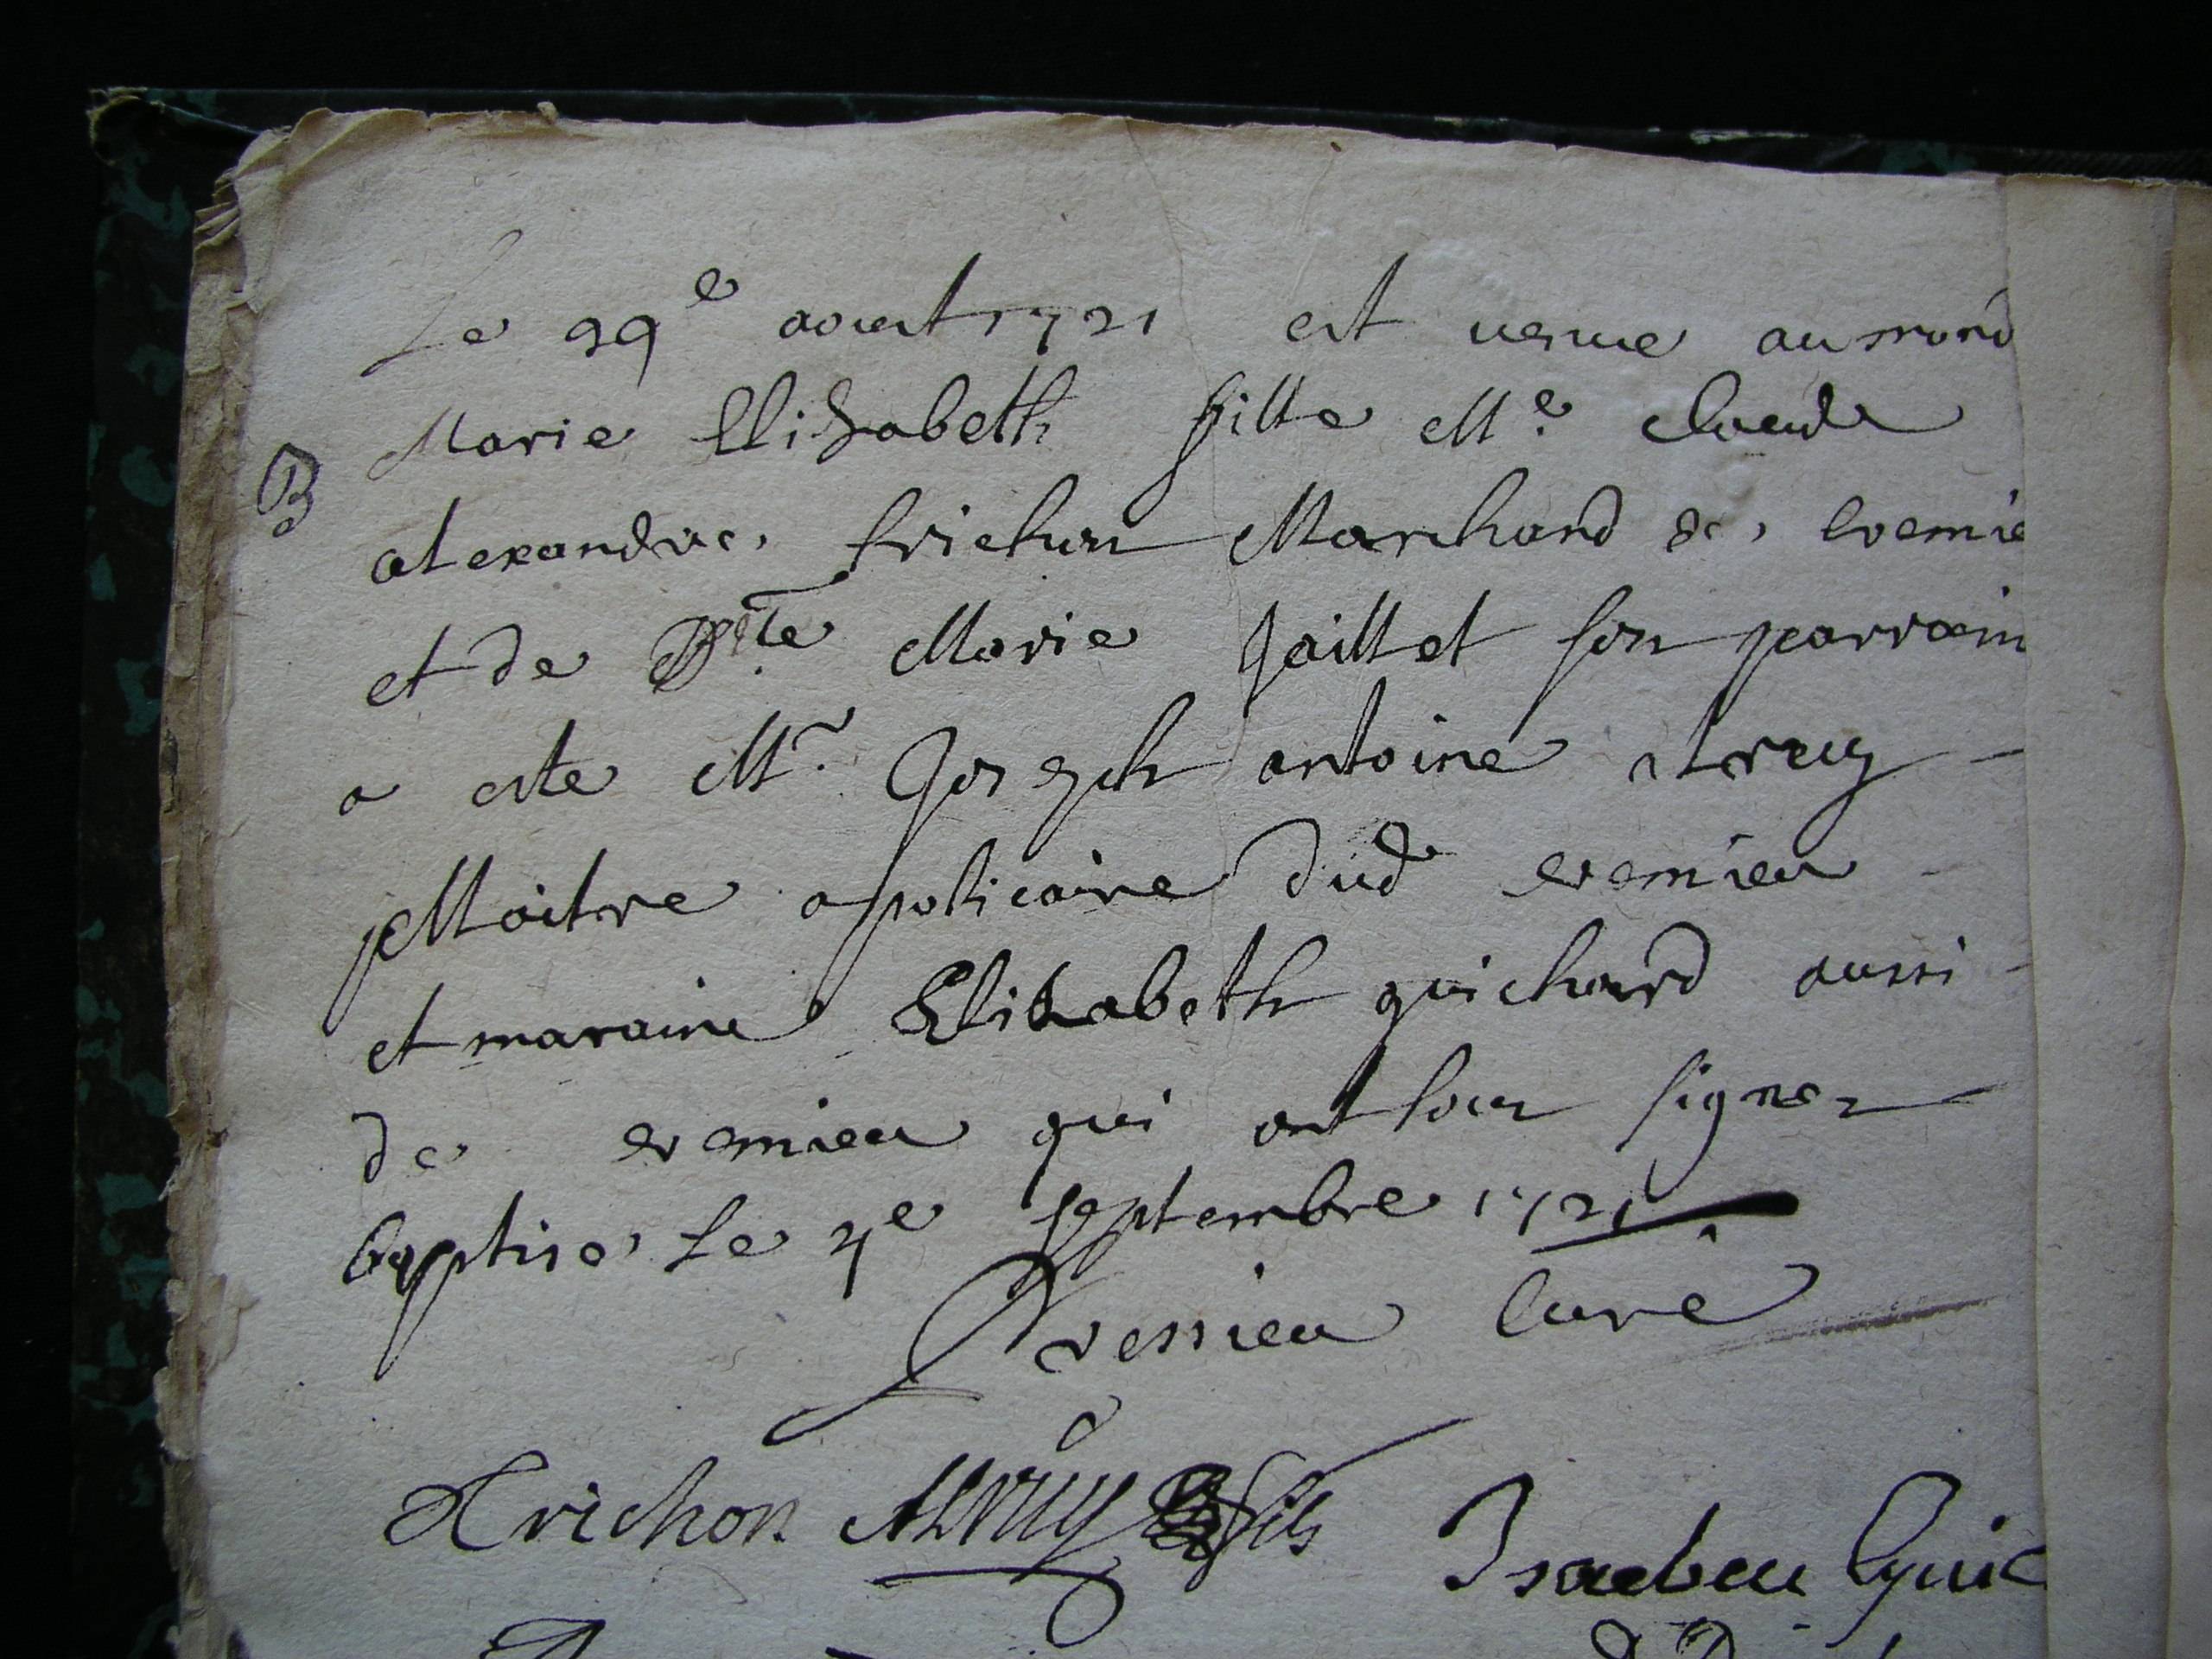 Le 29e aoust 1721 est venue au mond
B
Marie Elizabeth fille Mre Claude
alexandre frichon Marchand de Cremie
et de Dlle Marie Gaillet son parrain
a este Mr Joseph antoine alrruy
Maitre apoticaire dud cremieu
et maraine Elizabeth guichard aussi
de cremieu qui ont sous signez
baptise Le 4e septembre 1721
Dressieu Curé
frichon Alrruy fils Isabeau Guic